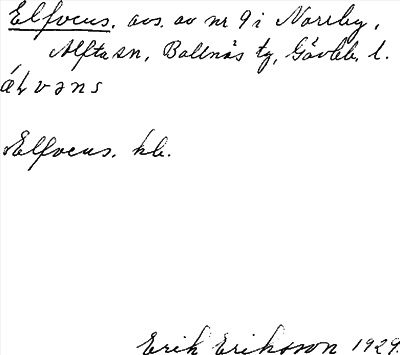 Elfvens. avs. av nr 9 i Norrby,
Alfta sn, Bollnäs tg, Gävleb. l.
Elfvens. kb.
Erik Eriksson 1929.